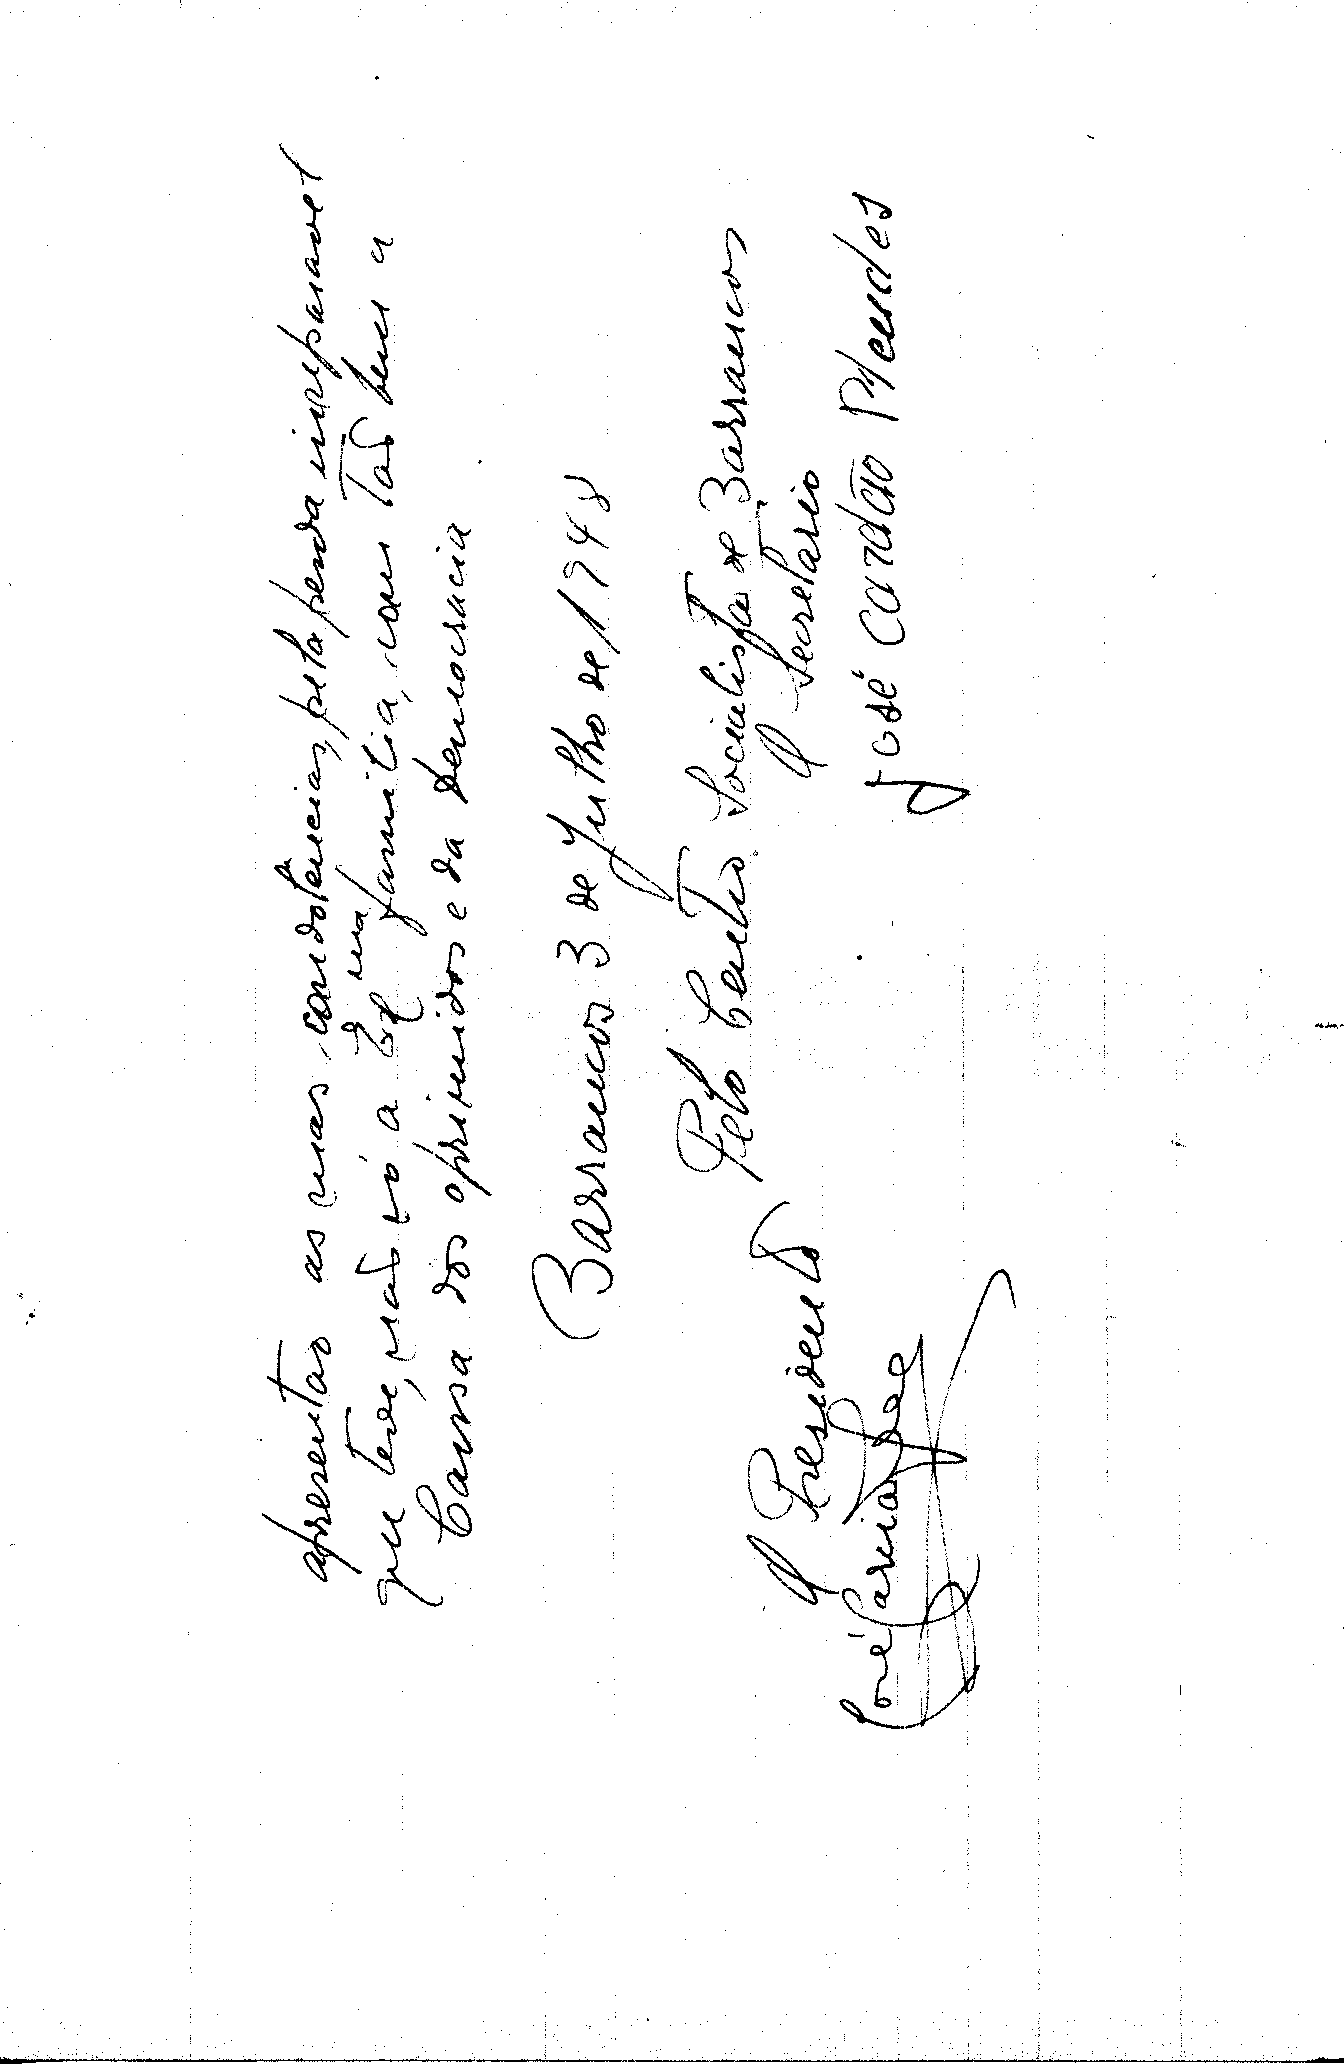 apresentar as mas condolencias, pela perda irreparavel
que teve, não só a Ex.ma familia, com Tão bem a
Causa dos oprimidos e da Democracia
Barrancos 3 de Julho de 1948
Pelo Centro Socialista de Barrancos
O Presidente O Secretario
José Garcia José Cardão Mendes